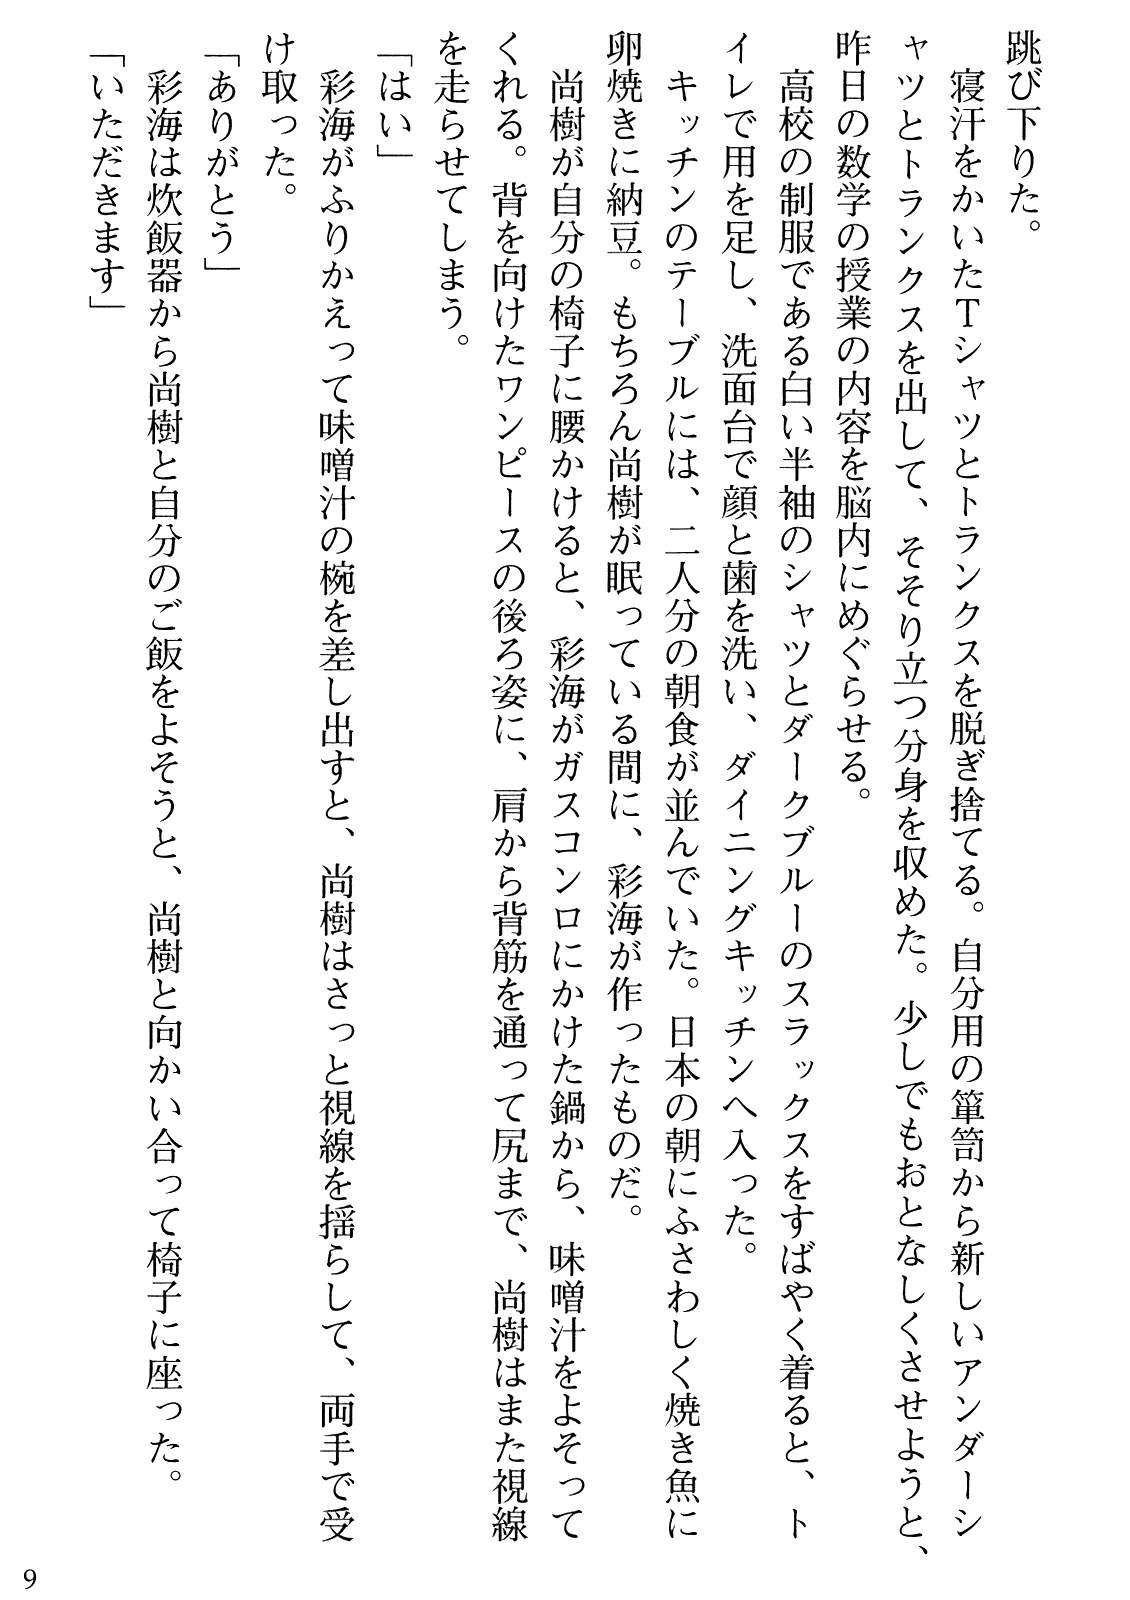 跳び下りた。
　寝汗をかいたＴシャツとトランクスを脱ぎ捨てる。自分用の箪笥から新しいアンダーシ
ャツとトランクスを出して、そそり立つ分身を収めた。少しでもおとなしくさせようと、
昨日の数学の授業の内容を脳内にめぐらせる。
　高校の制服である白い半袖のシャツとダークブルーのスラックスをすばやく着ると、ト
イレで用を足し、洗面台で顔と歯を洗い、ダイニングキッチンへ入った。
　キッチンのテーブルには、二人分の朝食が並んでいた。日本の朝にふさわしく焼き魚に
卵焼きに納豆。もちろん尚樹が眠っている間に、彩海が作ったものだ。
　尚樹が自分の椅子に腰かけると、彩海がガスコンロにかけた鍋から、味噌汁をよそって
くれる。背を向けたワンピースの後ろ姿に、肩から背筋を通って尻まで、尚樹はまた視線
を走らせてしまう。
「はい」
　彩海がふりかえって味噌汁の椀を差し出すと、尚樹はさっと視線を揺らして、両手で受
け取った。
「ありがとう」
　彩海は炊飯器から尚樹と自分のご飯をよそうと、尚樹と向かい合って椅子に座った。
「いただきます」
9